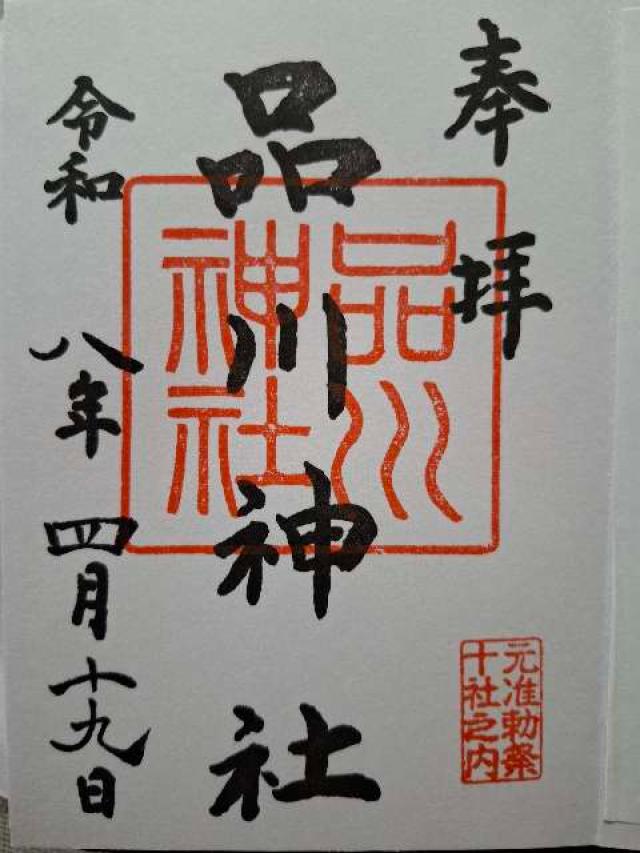 奉拝
品川神社
品川
神社
元准勅祭
十社之内
令和八年四月十九日